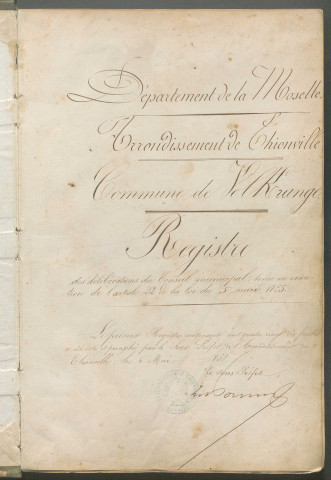 Département de la Moselle
Arrondissement de Thionville
Commune de Volkrange
Registre
des délibérations du Conseil municipal, tenu en exécu-
tion de l'article 22 de la loi du 5 mai 1855.
Le présent Registre contenant cent quatre vingt feuillets
a été coté et paraphé par le Sous Préfet de l'Arrondissement de
Thionville le 6 Mai
Le Sous Préfet